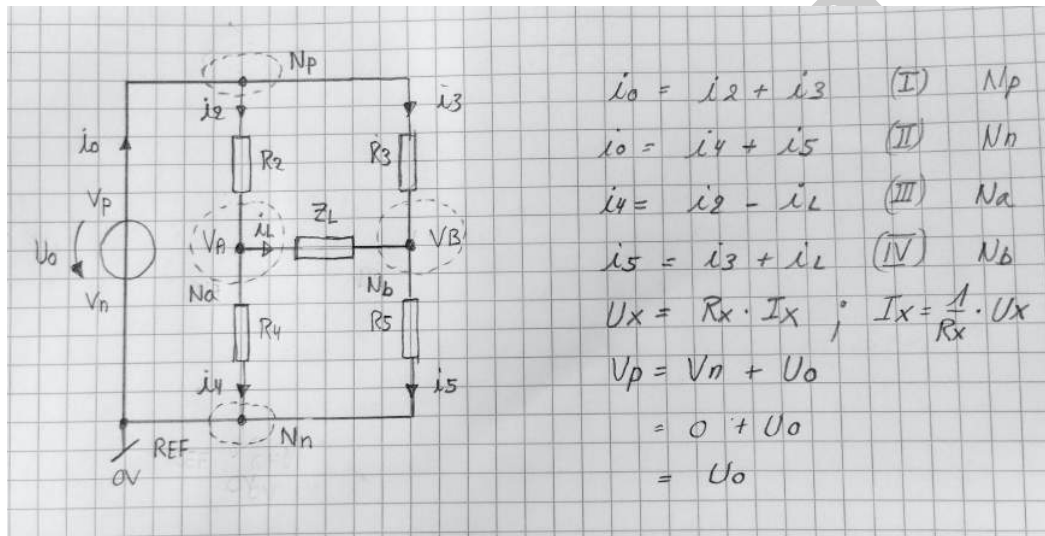 Np
i2
i3
i0
R2
R3
Vp
ZL
iL
VA
VB
U0
Vn
Na
Nb
R4
R5
i4
i5
Nn
REF
0V
i0 = i2 + i3 (I) Np
i0 = i4 + i5 (II) Nn
i4 = i2 - iL (III) Na
i5 = i3 + iL (IV) Nb
Ux = Rx · Ix ; Ix = 1/Rx · Ux
Vp = Vn + U0
= 0 + U0
= U0